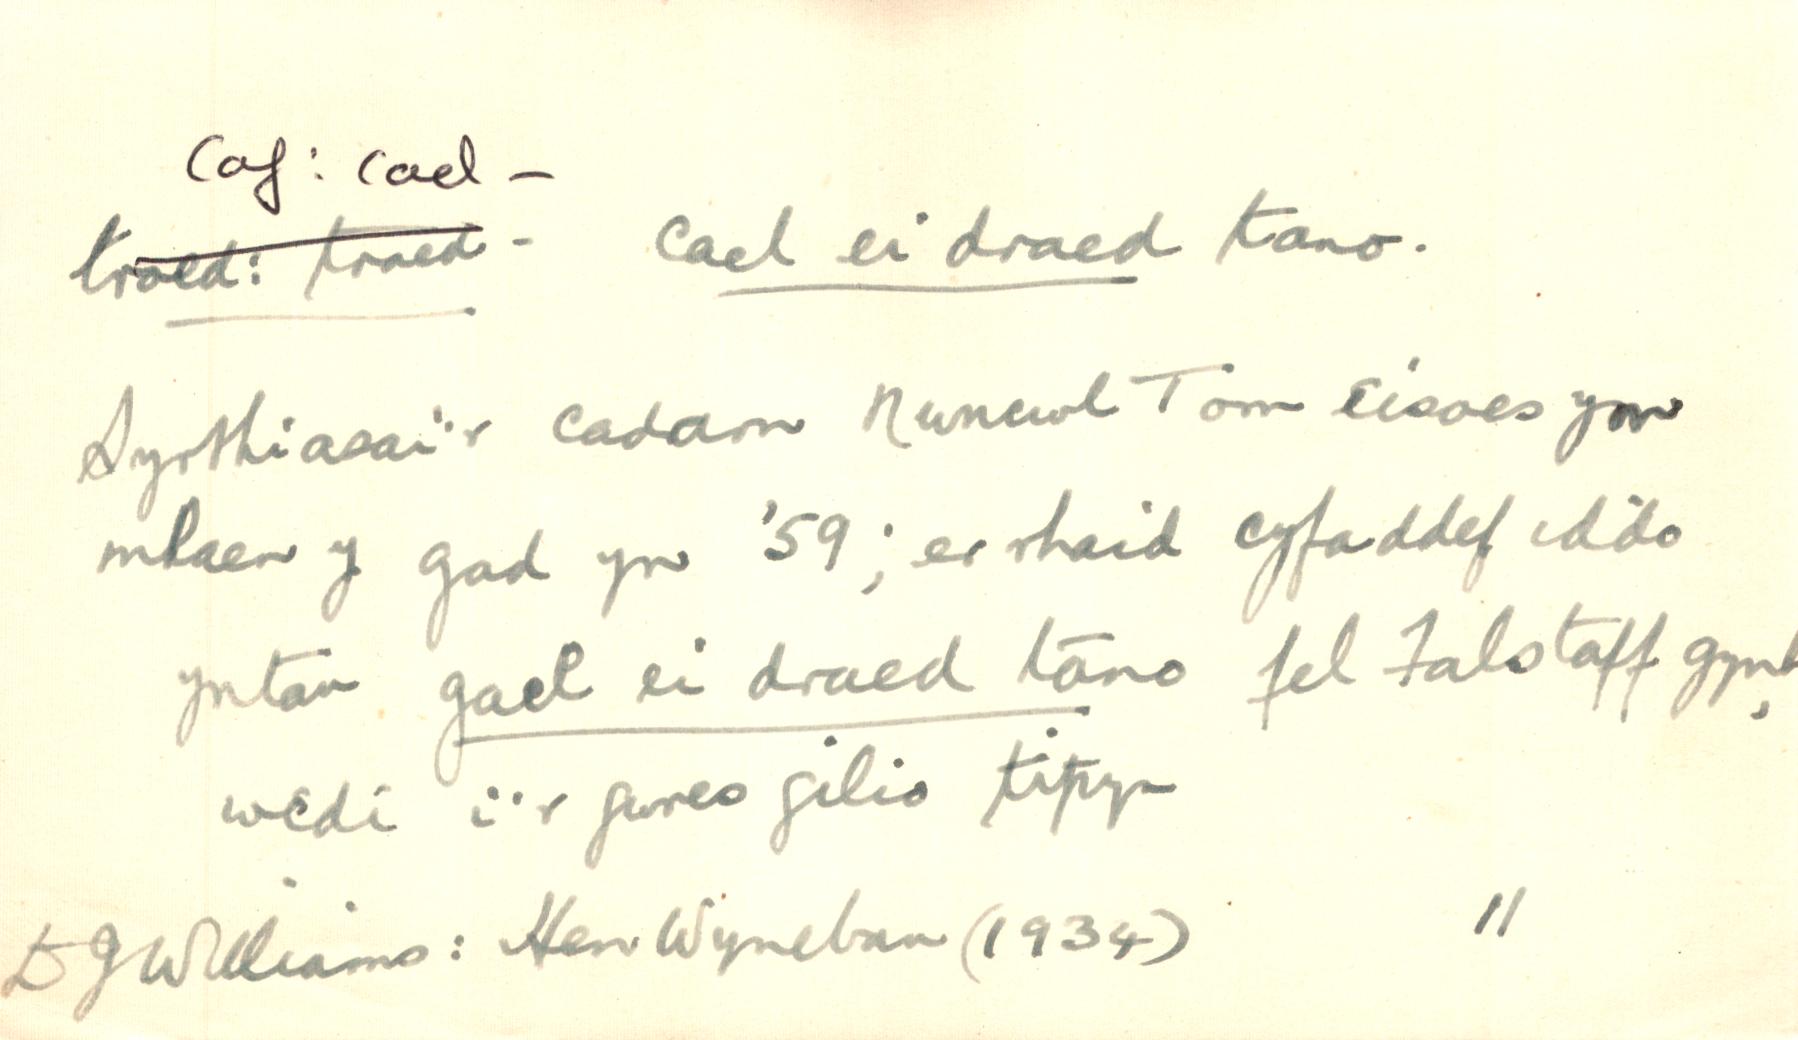 Caf: cael –
troed: traed - cael ei draed tano.
Syrthiasai'r cadarn Nwncwl Tom eisoes ym
mlaen y gad yn '59; er rhaid cyfaddef iddo
yntau gael ei draed tāno fel Falstaff gynt,
wedi i'r gwres gilio tipyn
D J Williams: Hen Wyneban (1934) 11